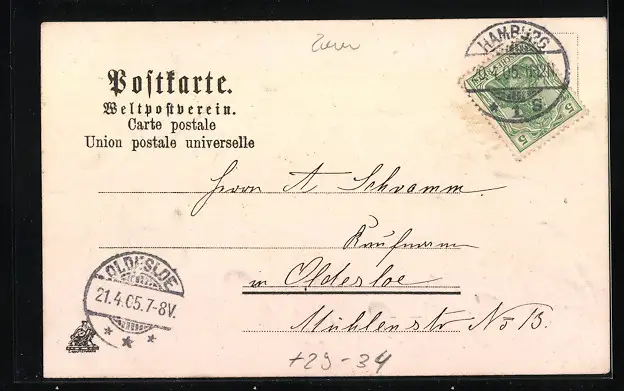 Postkarte.
Weltpostverein.
Carte postale
Union postale universelle
HAMBURG
4 05
* 1 S.
5
5
Herrn A Schramm.
Kaufmann
in Oldesloe
Mühlenstr No 13.
OLDESLOE
21.4.05.7-8V.
* * *
+29-34